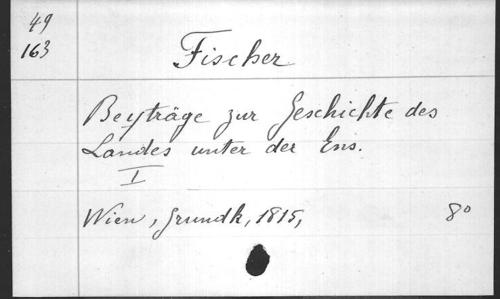 49
163
Fischer
Beyträge zur Geschichte des
Landes unter der Ens.
I
Wien, Grundk, 1815, 8°